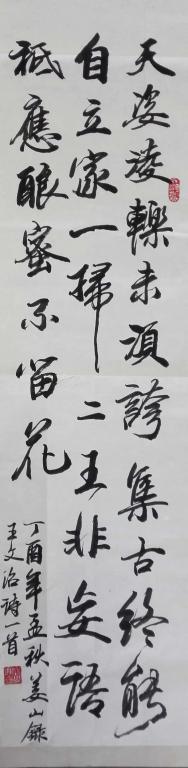 天姿凌轢未須誇集古終能
自立家一掃二王非妄語
祗應釀蜜不留花
丁酉年孟秋姜山錄
王文治詩一首